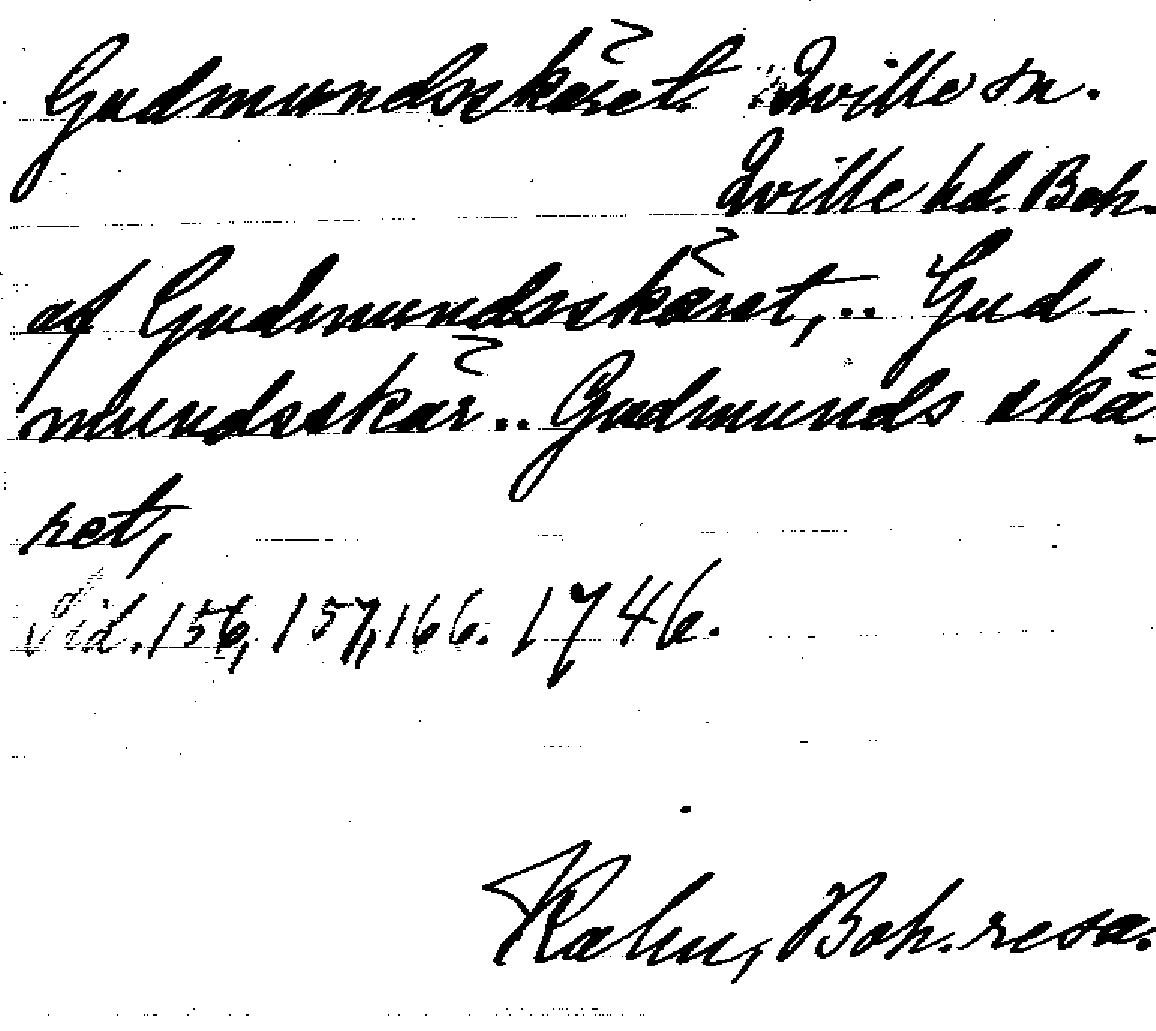 Gudmundsskäret. Qville sn.
Qville hd. Boh.
af Gudmundsskäret, .. Gud-
mundsskär .. Gudmunds skä-
ret,
Sid. 156, 157, 166. 1746.
Kalm, Boh. resa.